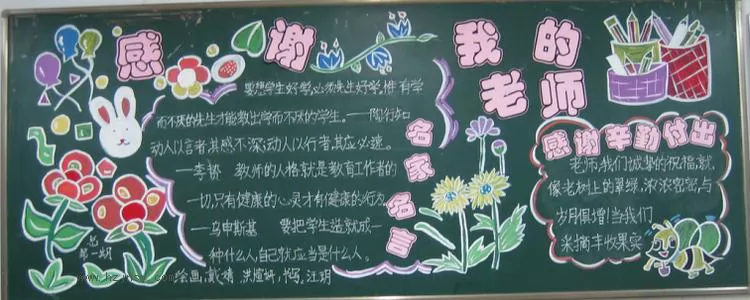 感谢我的老师
要想学生好学,必须先生好学,惟有学
而不厌的先生才能教出学而不厌的学生。——陶行知
动人以言者,其感不深;动人以行者,其应必速。
——李贽 教师的人格就是教育工作者的
一切,只有健康的心灵才有健康的行为
——乌申斯基 要把学生造就成一
种什么人,自己就应当是什么人。
名家名言
感谢辛勤付出
老师,我们诚挚的祝福,就
像老树上的翠绿,浓浓密密,与
岁月俱增!当我们
采摘丰收果实
总
第一期
绘画:戴靖
书写:汪玥